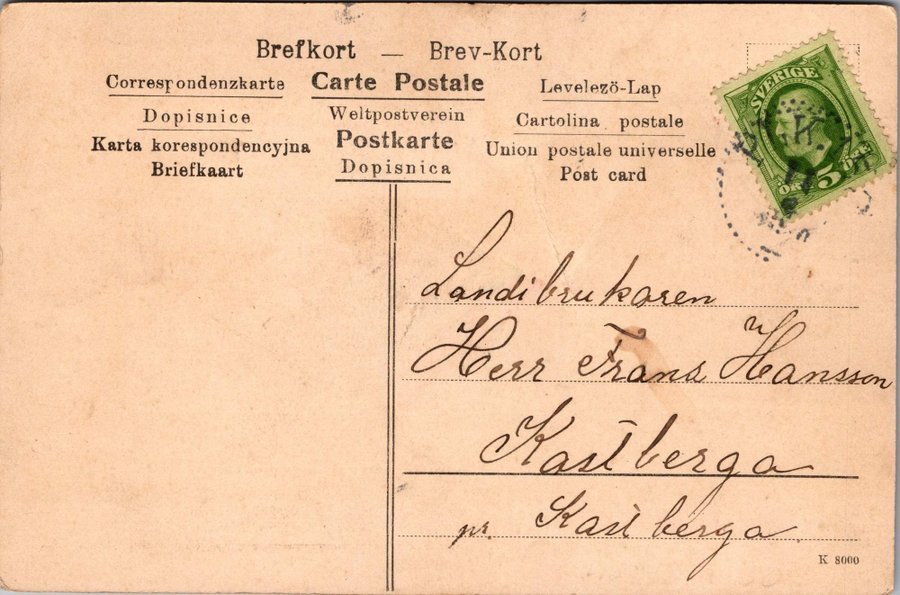 Brefkort — Brev-Kort
Correspondenzkarte Carte Postale Levelezö-Lap
Dopisnice Weltpostverein Cartolina postale
Karta korespondencyjna Postkarte Union postale universelle
Briefkaart Dopisnica Post card
SVERIGE
5 ÖRE
Landtbrukaren
Herr Frans Hansson
Kastberga
pr. Kastberga
K 8000